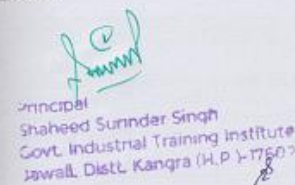 Principal
Shaheed Surinder Singh
Govt. Industrial Training Institute
Jawali, Distt. Kangra (H.P.)-1760